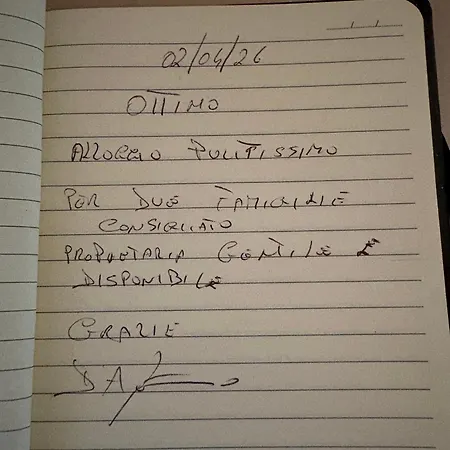 02/04/26
OTTIMO
ALLOGGIO PULITISSIMO
PER DUE FAMIGLIE
CONSIGLIATO
PROPRIETARIA GENTILE E
DISPONIBILE
GRAZIE